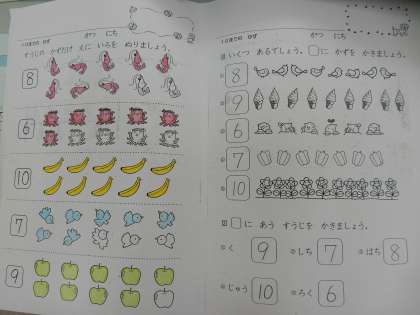 10までの かず
がつ にち
すうじの かずだけ えに いろを ぬりましょう。
8
6
10
7
9
10までの かず
がつ にち
いくつ あるでしょう。□に かずを かきましょう。
8
9
6
7
10
□に あう すうじを かきましょう。
く 9
しち 7
はち 8
じゅう 10
ろく 6